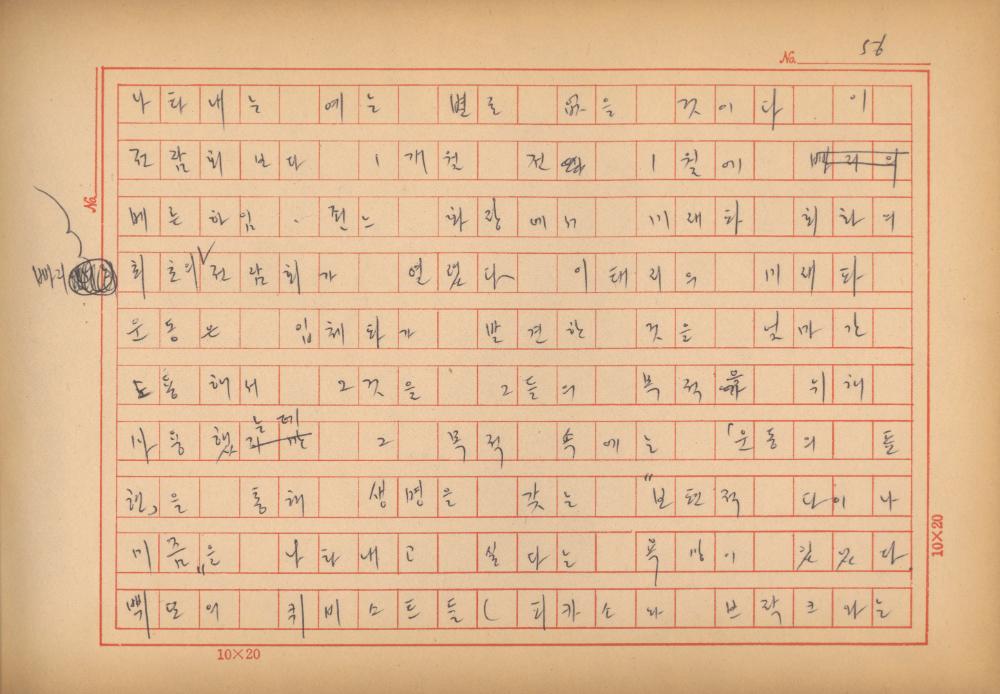 No. 56
나타내는 예는 별로 없을 것이다 이
전람회 보다 1개월 전 1월에
베른하임·죈느 화랑에서 미래파 회화의
최초의 전람회가 열렸다 이태리의 미래파
No.
빠리
운동은 입체파가 발견한 것을 얼마간
통해서 그것을 그들의 목적을 위해
사용했는데 그 목적 속에는 「운동의 표
현」을 통해 생명을 갖는 "보편적 다이나
미즘"을 나타내고 싶다는 욕망이 있었다.
빽또의 퀴비스트들(피카소와 브락크라는
10×20
10×20